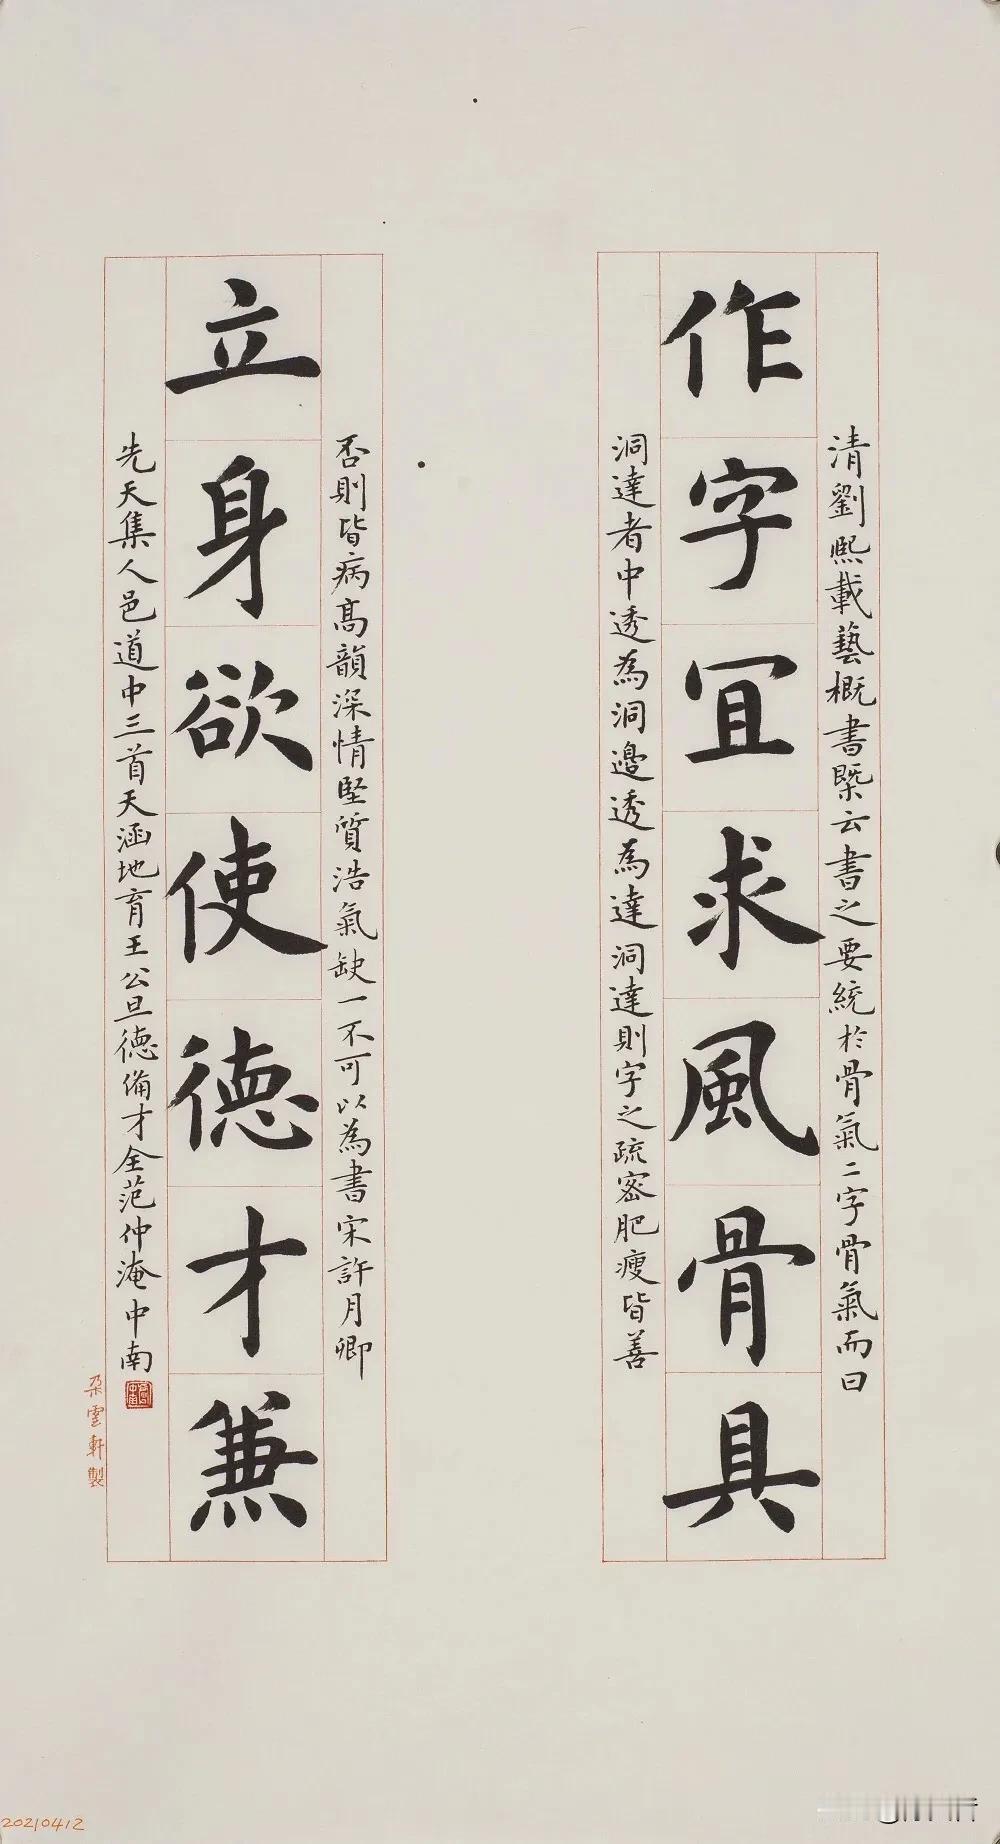 清劉熙載藝概書槩云書之要統於骨氣二字骨氣而曰
作字宜求風骨具
洞達者中透為洞邊透為達洞達則字之疏密肥瘦皆善
否則皆病高韻深情堅質浩氣缺一不可以為書宋許月卿
立身欲使德才兼
先天集人邑道中三首天涵地育王公旦德備才全范仲淹中南
朵雲軒製
20210412